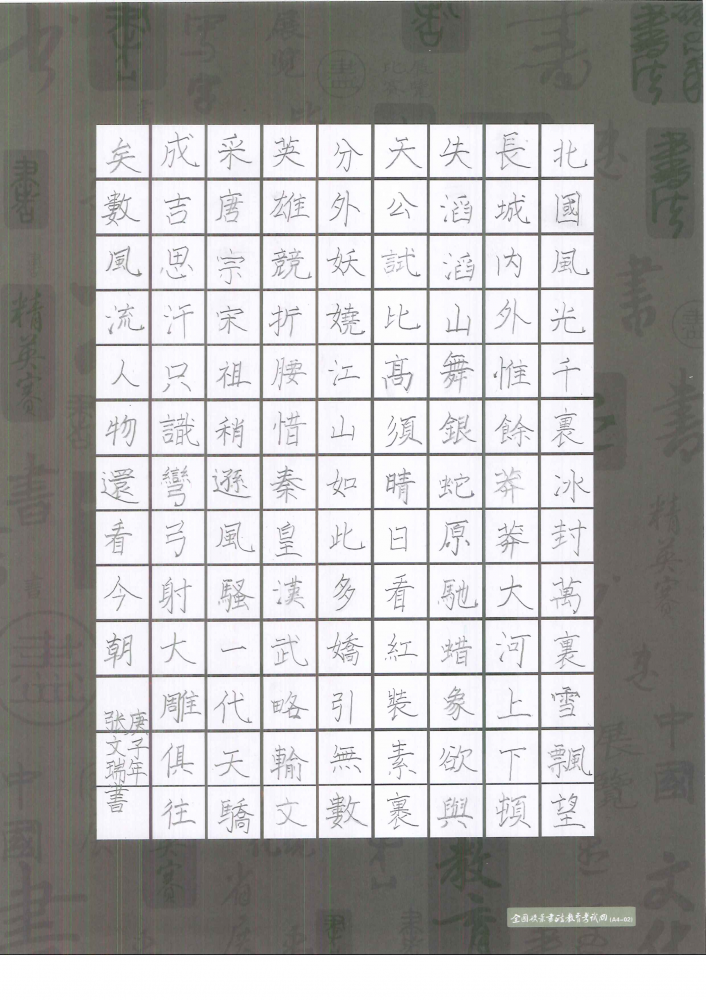 北國風光千裏冰封萬裏雪飄望
長城内外惟餘莽莽大河上下頓
失滔滔山舞銀蛇原馳蜡象欲與
天公試比高須晴日看紅裝素裹
分外妖嬈江山如此多嬌引無數
英雄競折腰惜秦皇漢武略輸文
采唐宗宋祖稍遜風騷一代天驕
成吉思汗只識彎弓射大雕俱往
矣數風流人物還看今朝
庚子年
张文瑞書
全国硬笔书法教育考试网(A4-02)